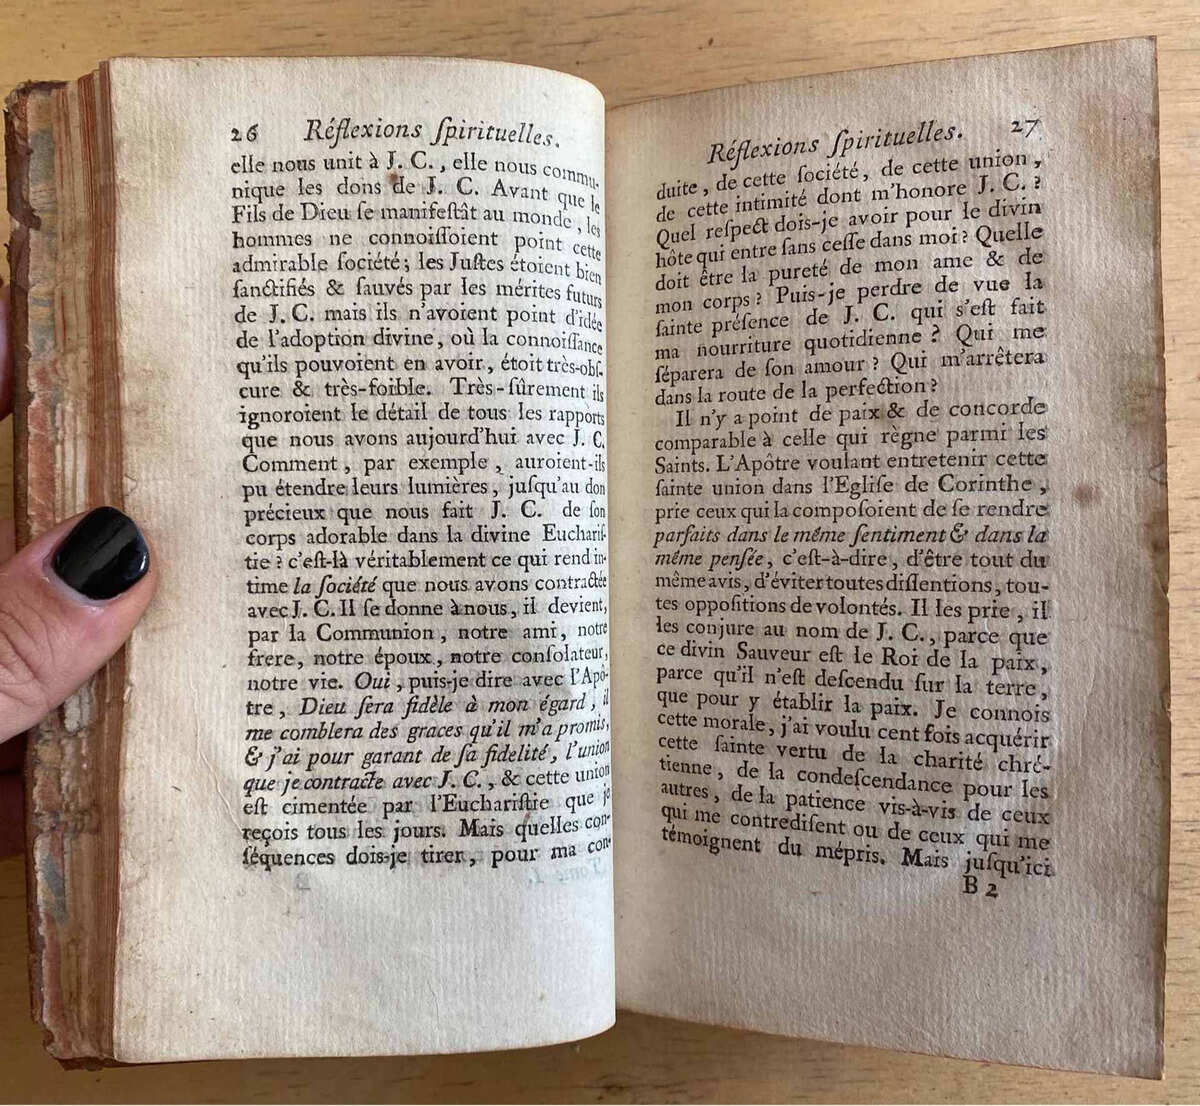 26 Réflexions ſpirituelles.
elle nous unit à J. C., elle nous commu-
nique les dons de J. C. Avant que le
Fils de Dieu ſe manifeſtât au monde, les
hommes ne connoiſſoient point cette
admirable ſociété; les Juſtes étoient bien
ſanctifiés & ſauvés par les mérites futurs
de J. C. mais ils n'avoient point d'idée
de l'adoption divine, où la connoiſſance
qu'ils pouvoient en avoir, étoit très-obſ-
cure & très-foible. Très-ſûrement ils
ignoroient le détail de tous les rapports
que nous avons aujourd'hui avec J. C.
Comment, par exemple, auroient-ils
pu étendre leurs lumières, juſqu'au don
précieux que nous fait J. C. de ſon
corps adorable dans la divine Euchariſ-
tie? c'eſt-là véritablement ce qui rend in-
time la ſociété que nous avons contractée
avec J. C. Il ſe donne à nous, il devient,
par la Communion, notre ami, notre
frere, notre époux, notre conſolateur,
notre vie. Oui, puis-je dire avec l'Apô-
tre, Dieu ſera fidèle à mon égard, il
me comblera des graces qu'il m'a promis,
& j'ai pour garant de ſa fidelité, l'union
que je contracte avec J. C., & cette union
eſt cimentée par l'Euchariſtie que je
reçois tous les jours. Mais quelles con-
ſéquences dois-je tirer, pour ma con-
Réflexions ſpirituelles. 27
duite, de cette ſociété, de cette union,
de cette intimité dont m'honore J. C.?
Quel reſpect dois-je avoir pour le divin
hôte qui entre ſans ceſſe dans moi? Quelle
doit être la pureté de mon ame & de
mon corps? Puis-je perdre de vue la
ſainte préſence de J. C. qui s'eſt fait
ma nourriture quotidienne? Qui me
ſéparera de ſon amour? Qui m'arrêtera
dans la route de la perfection?
Il n'y a point de paix & de concorde
comparable à celle qui règne parmi les
Saints. L'Apôtre voulant entretenir cette
ſainte union dans l'Egliſe de Corinthe,
prie ceux qui la compoſoient de ſe rendre
parfaits dans le même ſentiment & dans la
même penſée, c'eſt-à-dire, d'être tout du
même avis, d'éviter toutes diſſentions, tou-
tes oppoſitions de volontés. Il les prie, il
les conjure au nom de J. C., parce que
ce divin Sauveur eſt le Roi de la paix,
parce qu'il n'eſt deſcendu ſur la terre,
que pour y établir la paix. Je connois
cette morale, j'ai voulu cent fois acquérir
cette ſainte vertu de la charité chré-
tienne, de la condeſcendance pour les
autres, de la patience vis-à-vis de ceux
qui me contrediſent ou de ceux qui me
témoignent du mépris. Mais juſqu'ici
B 2